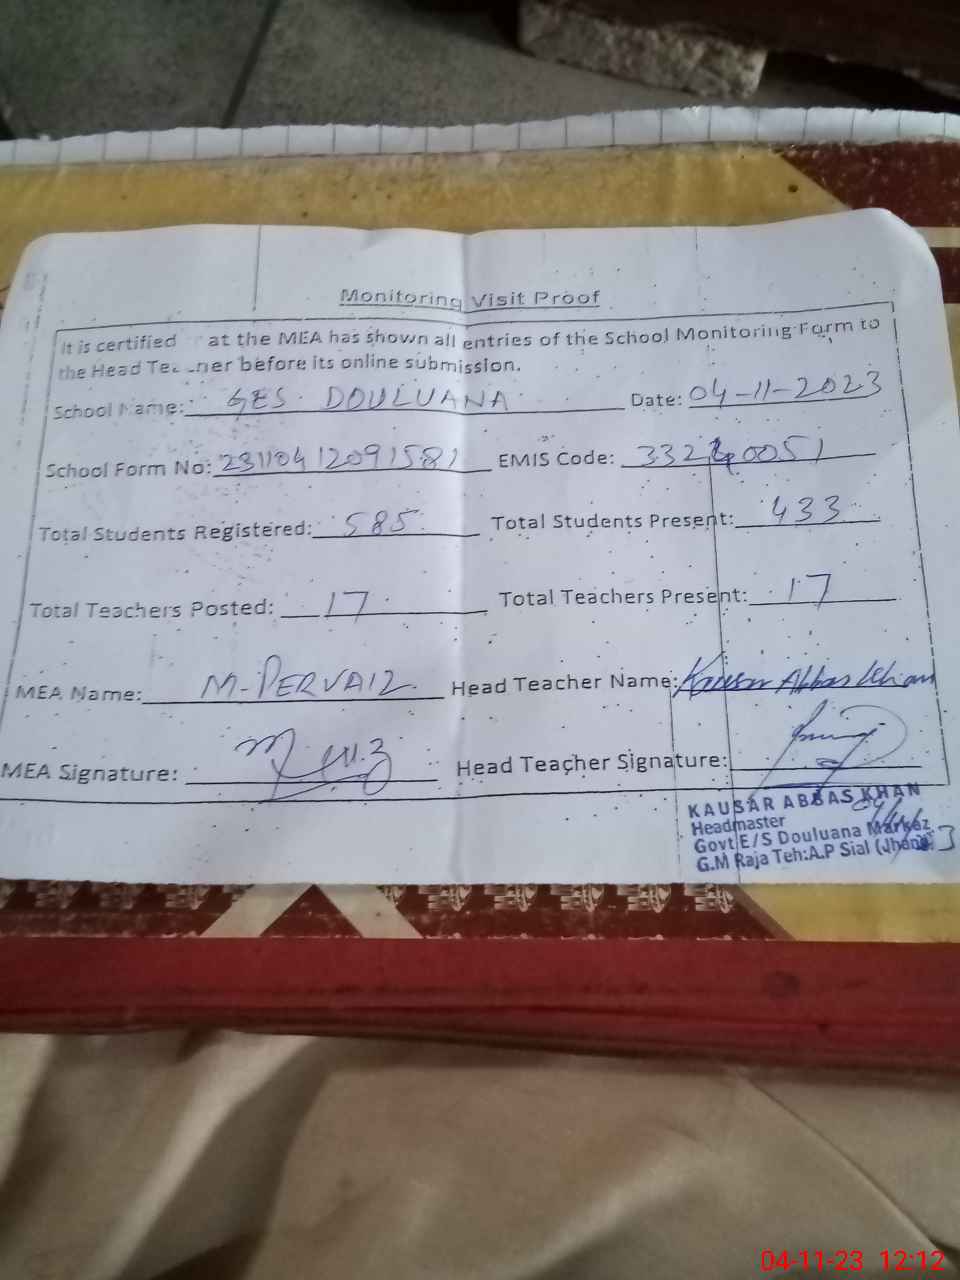 Monitoring Visit Proof
It is certified at the MEA has shown all entries of the School Monitoring Form to
the Head Teacher before its online submission.
School Name: GES. DOULUANA Date: 04-11-2023
School Form No: 23110412091581 EMIS Code: 33240051
Total Students Registered: 585 Total Students Present: 433
Total Teachers Posted: 17 Total Teachers Present: 17
MEA Name: M-PERVAIZ Head Teacher Name: Kausar Abbas Khan
MEA Signature: Head Teacher Signature:
KAUSAR ABBAS KHAN
Headmaster
Govt E/S Douluana Markaz
G.M Raja Teh:A.P Sial (Jhang)
04-11-23 12:12